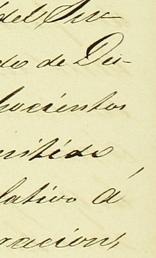 del Sr
do de Di-
hocientos
mitido
lativo á
racion,